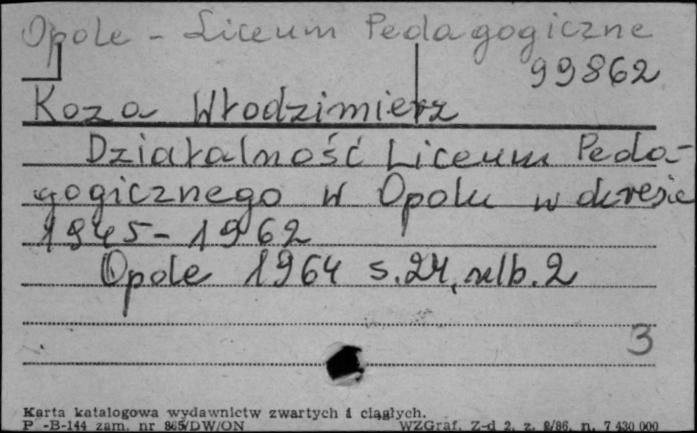 Opole - Liceum Pedagogiczne
99862
Koza Włodzimierz
Działalność Liceum Peda-
gogicznego w Opolu w okresie
1945-1962
Opole 1964 s.24, nlb.2
3
Karta katalogowa wydawnictw zwartych i ciągłych.
P -B-144 zam. nr 865/DW/ON WZGraf. Z-d 2, z. 9/86, n. 7 430 000